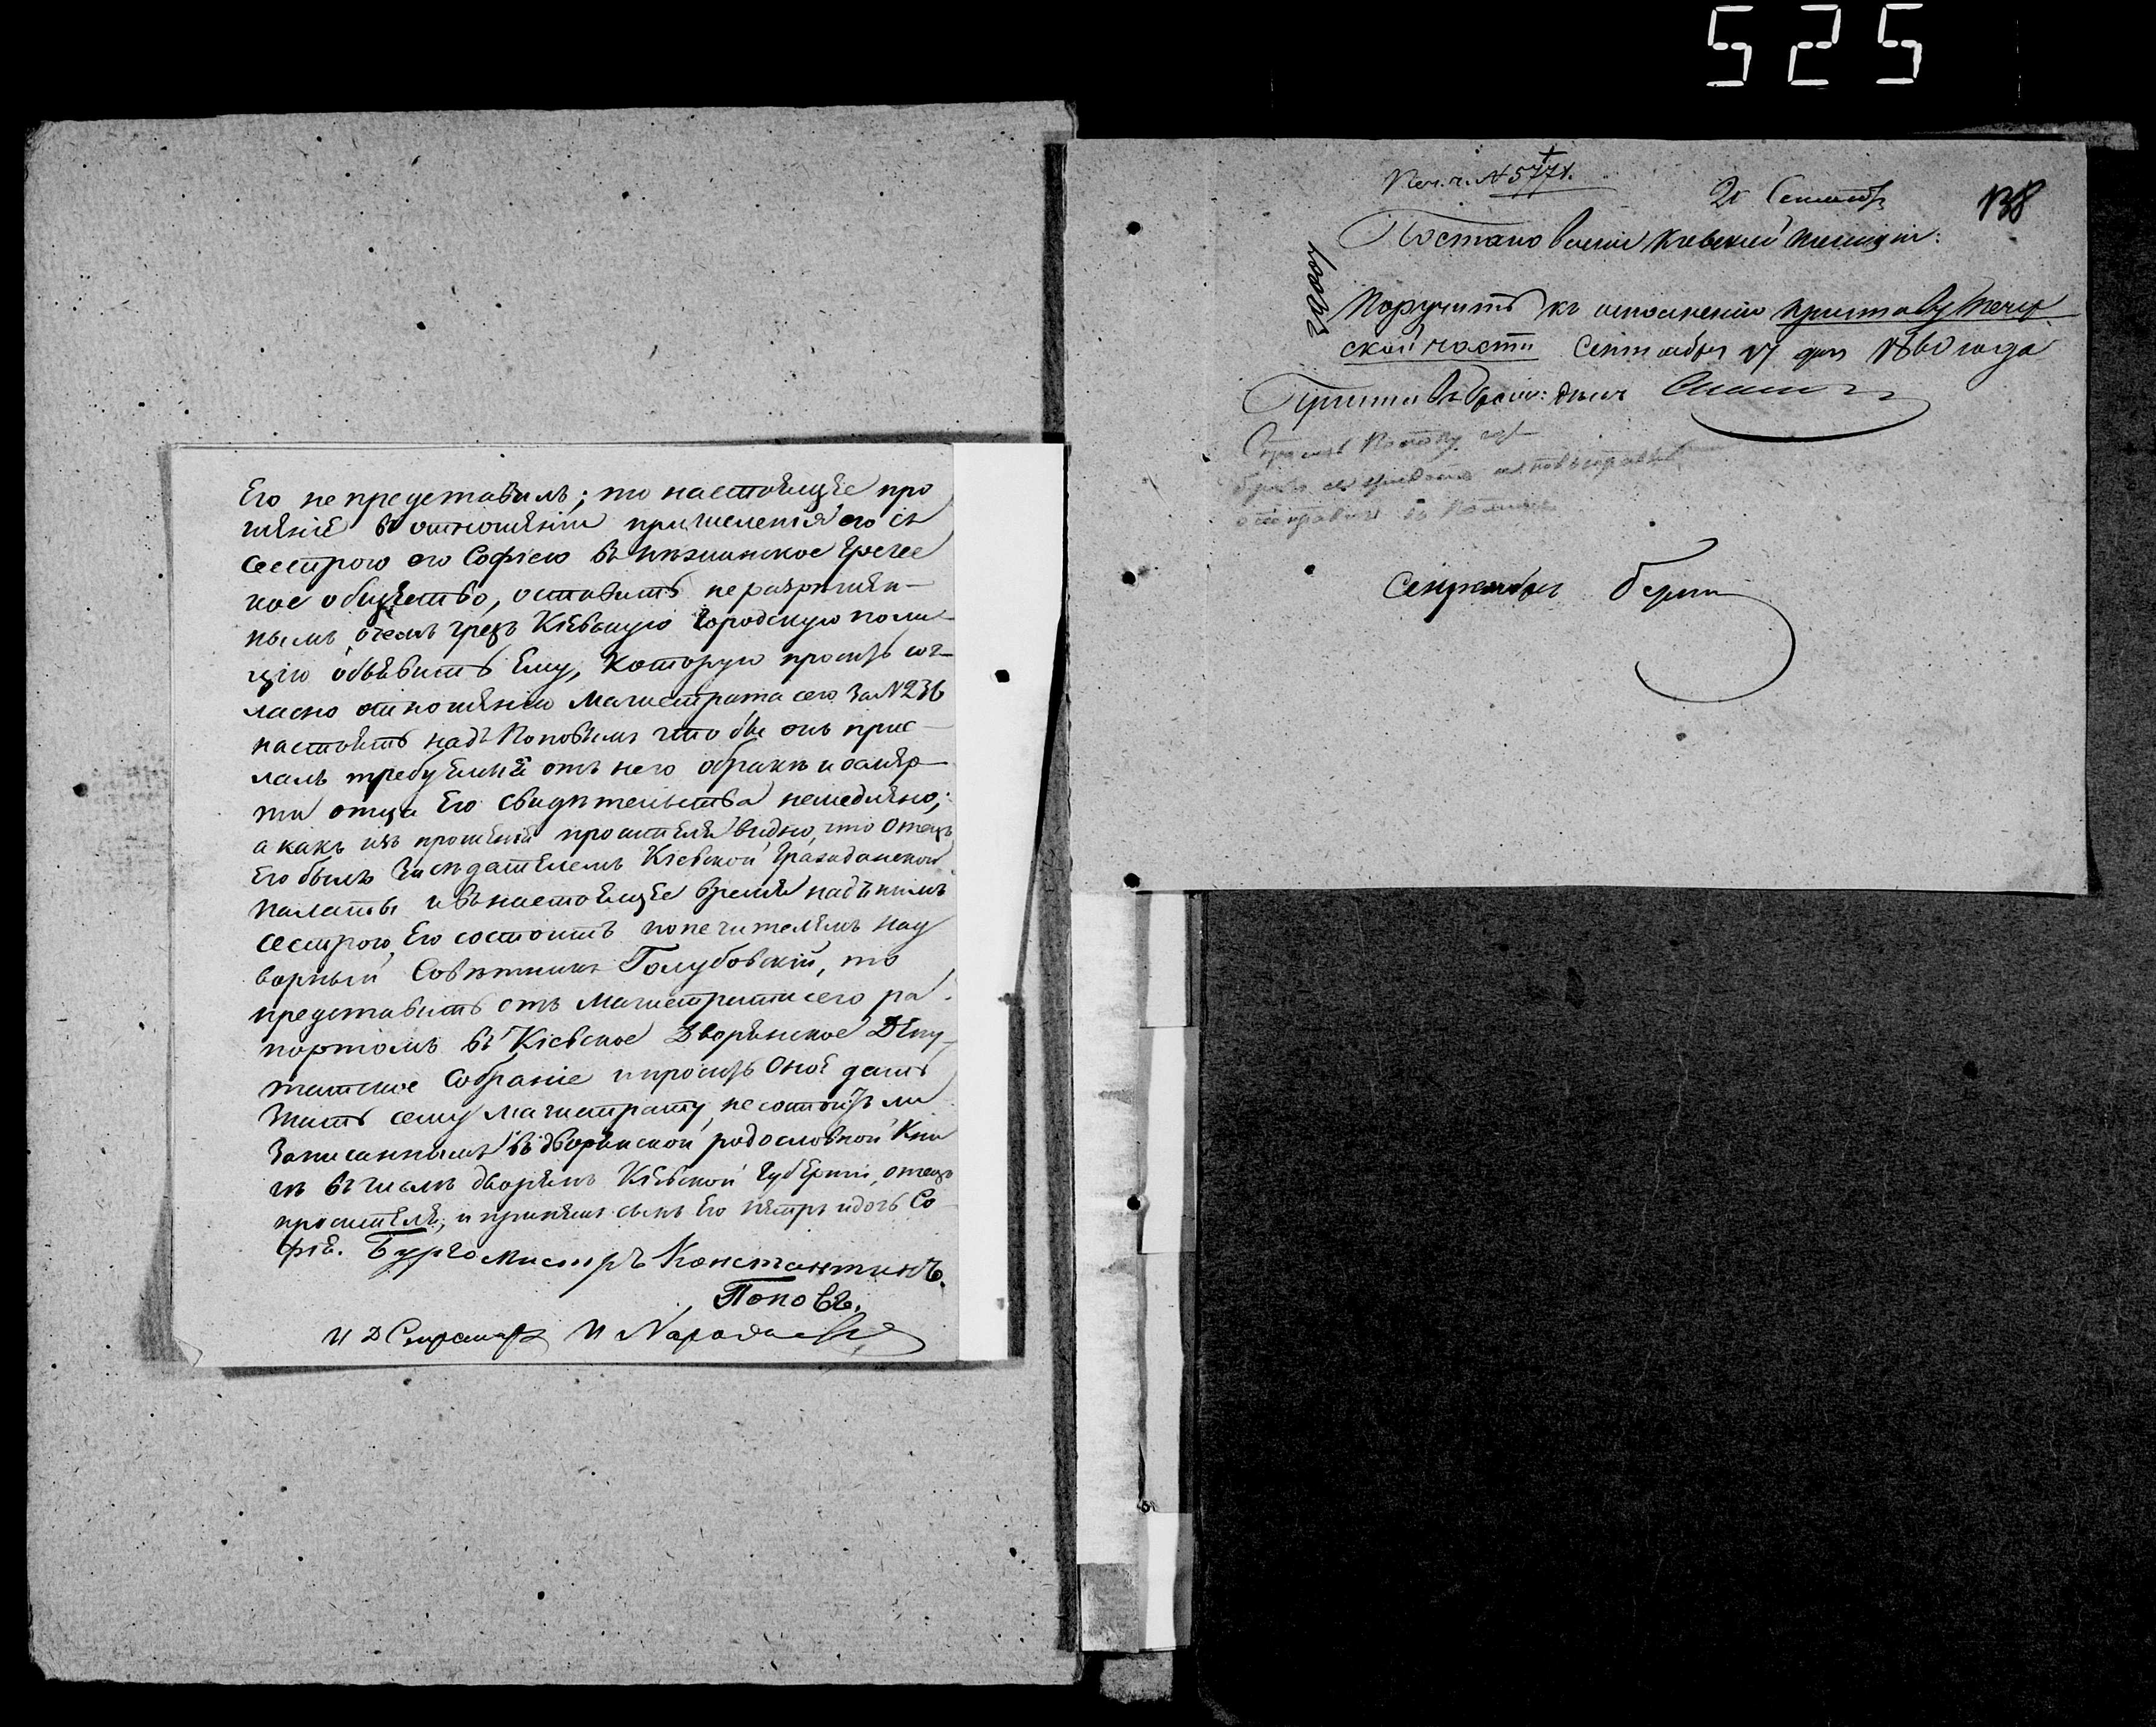 525
Его не представилъ; то настоящее про
шеніе въ отношеніи причисленія его съ
сестрою его Софіею въ Нѣжинское Гречес
кое общество, оставить не разрѣшен-
нымъ, о чемъ чрезъ Кіевскую городскую поли
цію объявить Ему, которую просить сог-
ласно отношенію Магистрата сего за №236
настоять надъ Поповымъ что бы онъ прис-
лалъ требуемыя отъ него о бракѣ и о смер-
ти отца Его свидѣтельства немедленно;
а какъ изъ прошенія просителя видно, что отецъ
Его былъ Засѣдателемъ Кіевской Гражданской
Палаты и въ настоящее время надъ нимъ
сестрою Его состоитъ попечителемъ Над
ворный Совѣтникъ Голубовскій, то
представить отъ Магистрата сего ра
портомъ въ Кіевское Дворянское Депу-
татское Собраніе и просить оное дать
знать сему Магистрату, не состоитъ ли
записаннымъ въ дворянской родословной Кни
гѣ въ числѣ дворянъ Кіевской Губерніи, отецъ
просителя, и при немъ сынъ Его Петръ и дочь Со
фія. Бургомистръ Константинъ
Поповъ.
И Д Секретаря И
№ 5771.
21 Сентяб
138
Постановленіе Кіевской Полиціи:
Поручить къ исполненію приставу Печер
ской части Сентября 17 дня 1860 года
Сентября